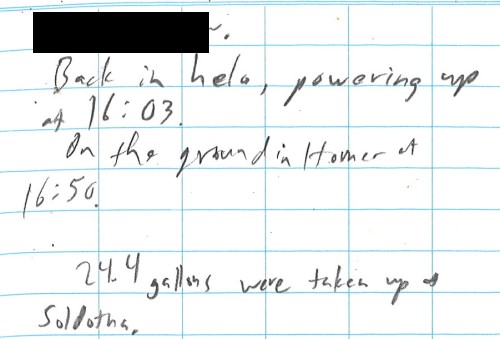 Back in helo, powering up
at 16:03.
On the ground in Homer at
16:50.
24.4 gallons were taken up
Soldotna.